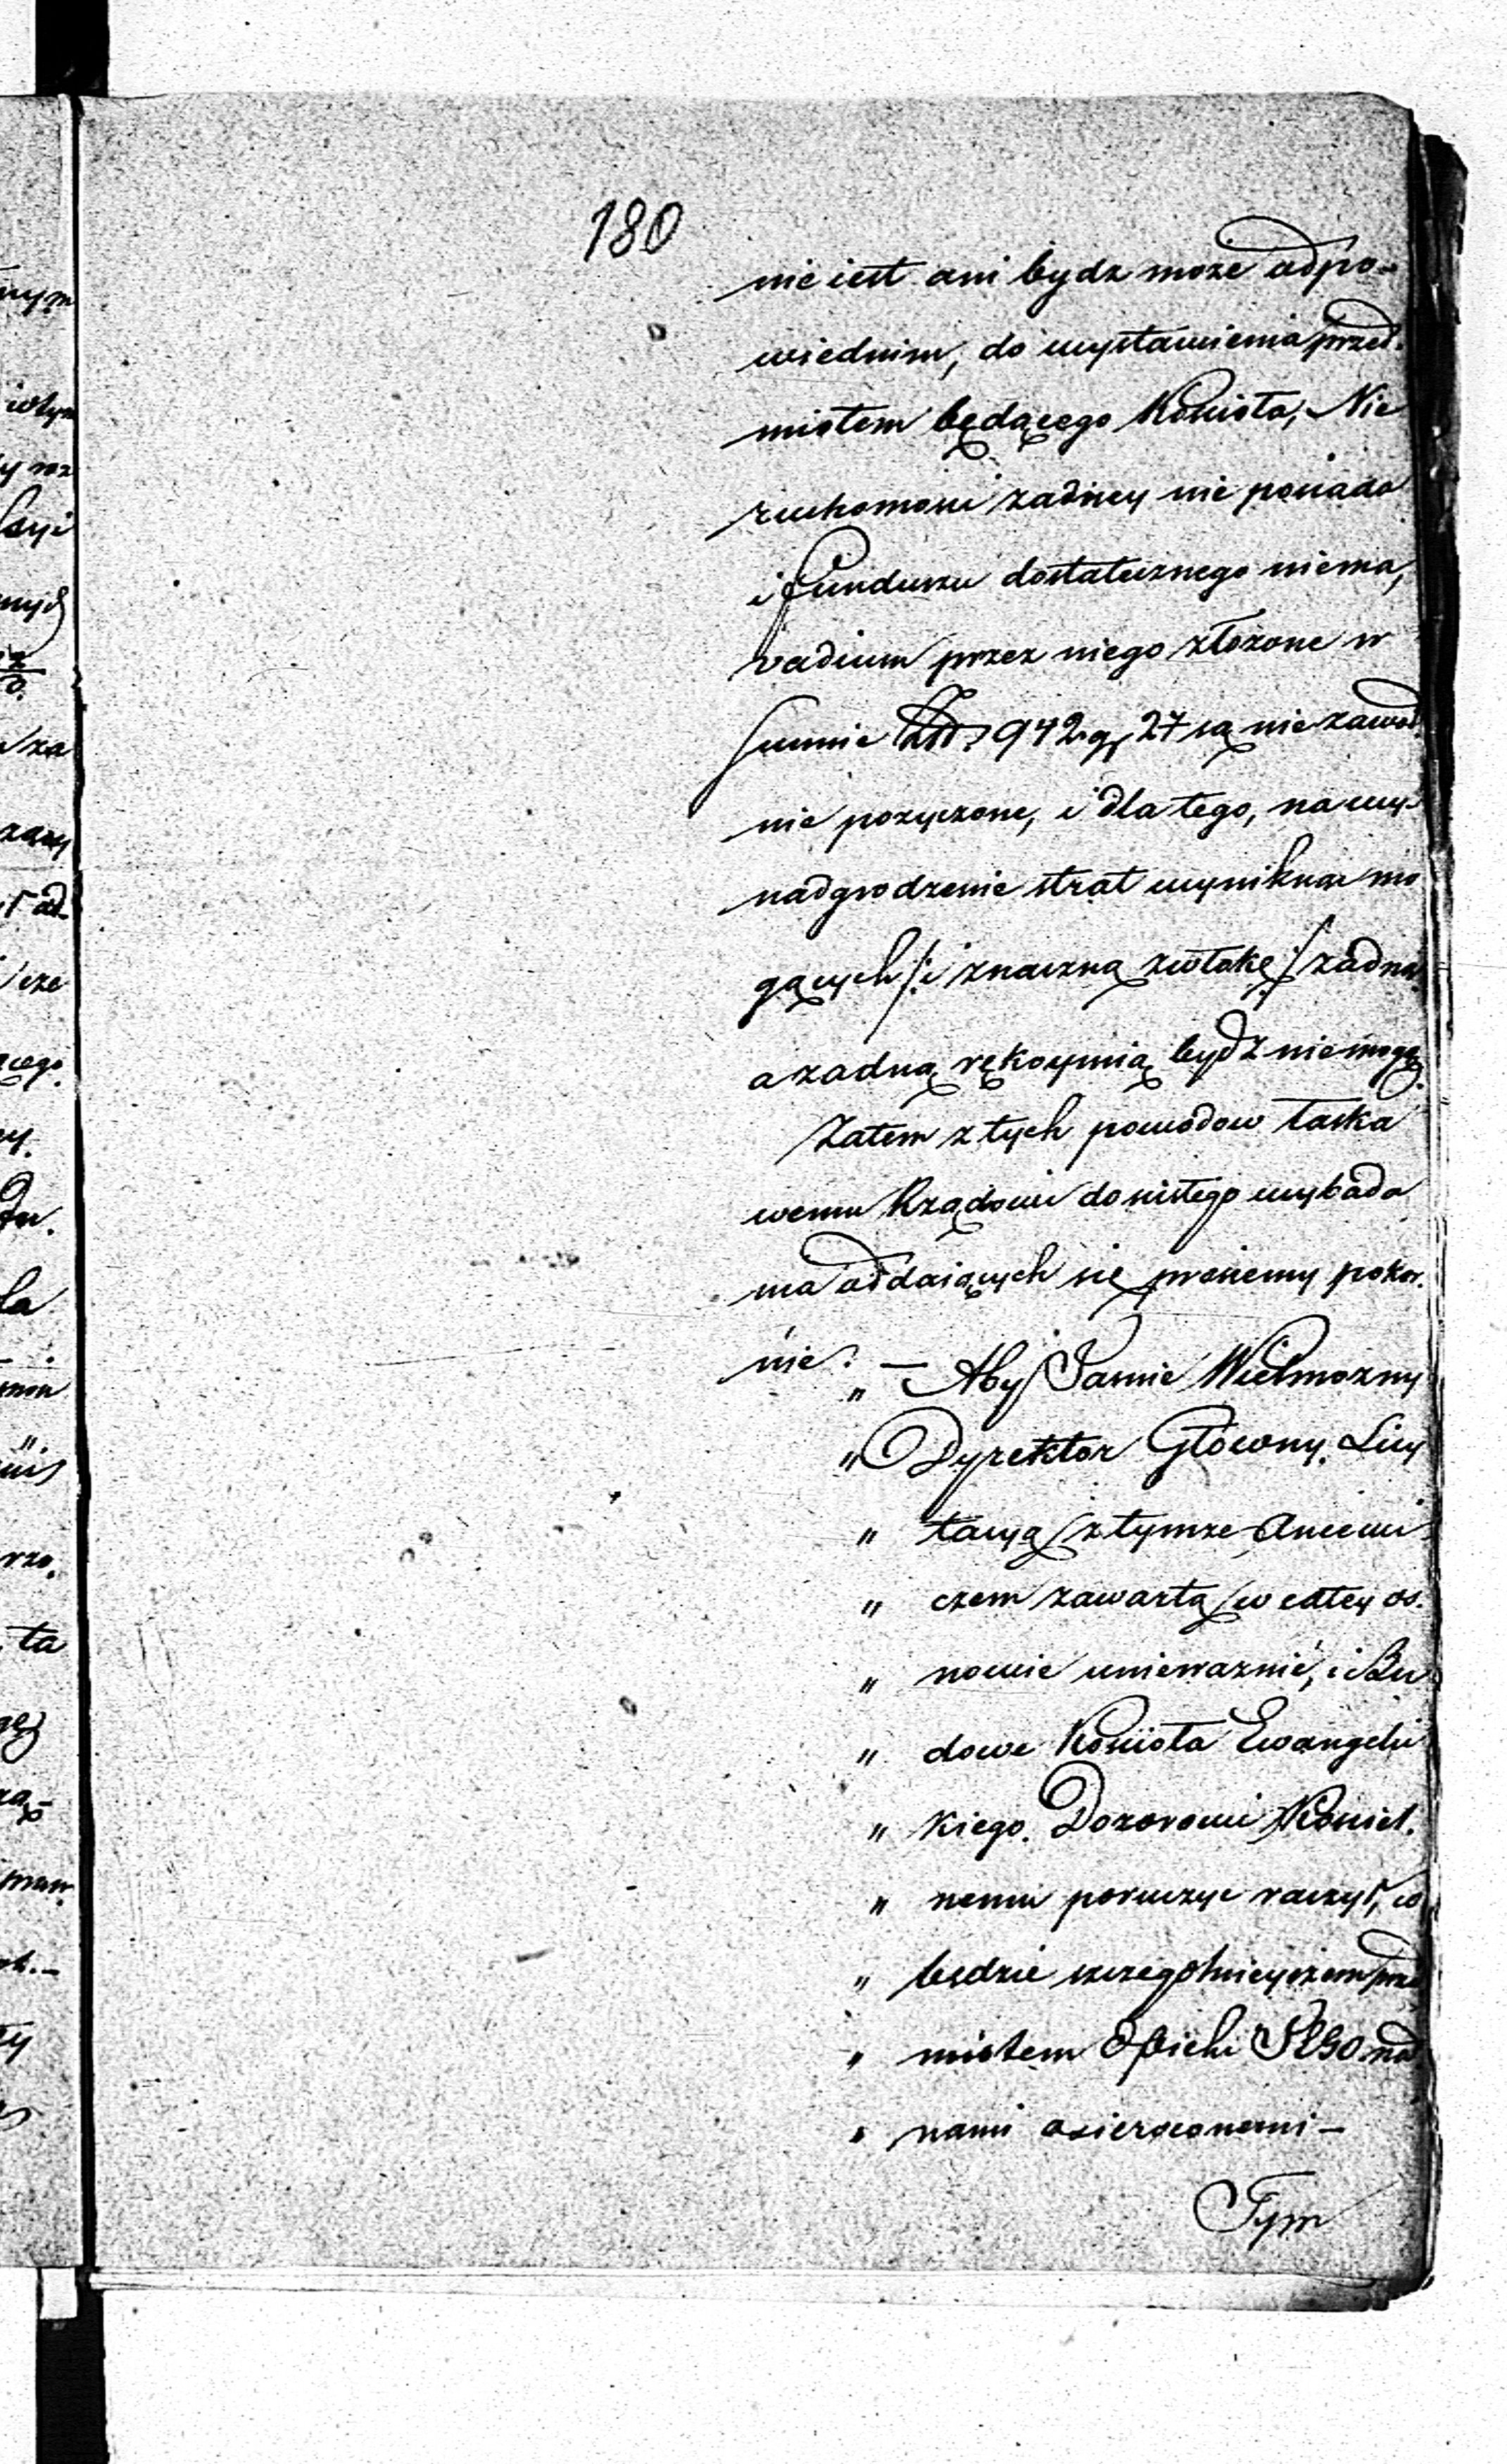 180
nie iest ani bydz może odpo-
wiednim, do wystawienia przed-
miotem będącego Kościoła, Nie
ruchomości żadney nie posiada
i funduszu dostatecznego niema,
vadium przez niego złożone w
summie 942 gr 27 są nie zawod
nie pożyczone, i dla tego, na wy-
nadgrodzenie strat wyniknąć mo
gących /: i znaczną zwłokę :/ żadną
a żadną rękoymią bydź nie mogą.
Zatem z tych powodow łaska
wemu Rządowi do ścisłego wybada
nia oddaiących się prosiemy pokor.
nie: —
„ — Aby Jaśnie Wielmożny
„ Dyrektor Głowny Licy
„ tacyą z tymże
„ czem zawartą w całey os.
„ nowie unieważnić, i Bu
„ dowe Kościoła Ewangelic
„ kiego Dozorowi Kościel.
„ nemu poruczyć raczył, co
„ będzie szczegolnieyszem prze
„ miotem Opieki nad
„ nami osieroconemi —
Tym